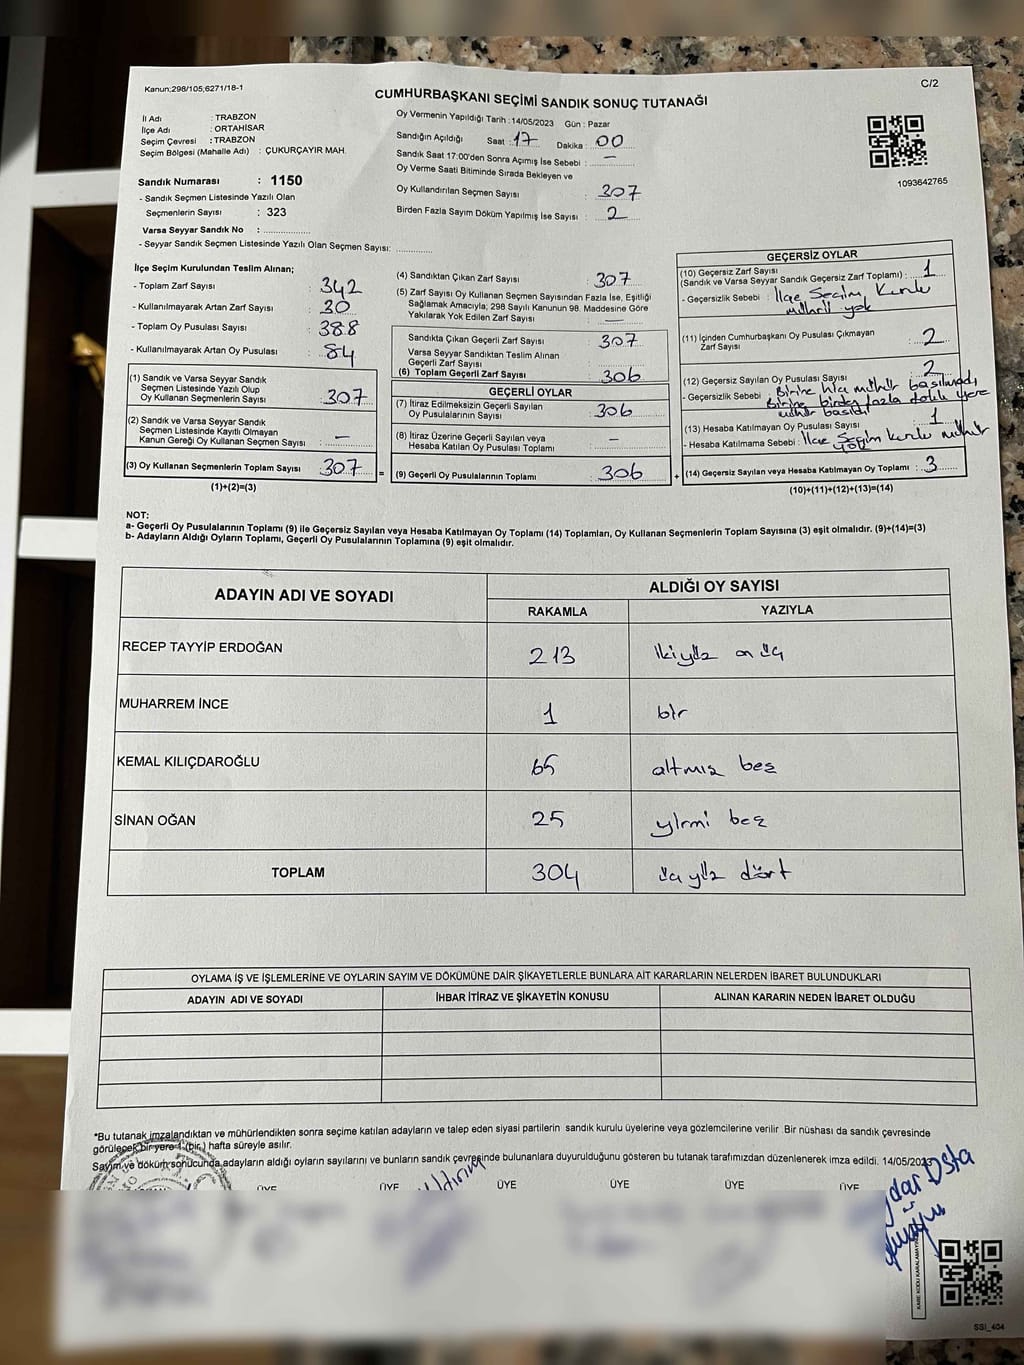 Kanun;298/105;6271/18-1
C/2
CUMHURBAŞKANI SEÇİMİ SANDIK SONUÇ TUTANAĞI
İl Adı : TRABZON
İlçe Adı : ORTAHİSAR
Seçim Çevresi : TRABZON
Seçim Bölgesi (Mahalle Adı) : ÇUKURÇAYIR MAH.
Sandık Numarası : 1150
- Sandık Seçmen Listesinde Yazılı Olan
Seçmenlerin Sayısı : 323
Varsa Seyyar Sandık No : ....................
- Seyyar Sandık Seçmen Listesinde Yazılı Olan Seçmen Sayısı: ...............
Oy Vermenin Yapıldığı Tarih : 14/05/2023 Gün : Pazar
Sandığın Açıldığı Saat : 17 Dakika : 00
Sandık Saat 17:00'den Sonra Açımış İse Sebebi : —
Oy Verme Saati Bitiminde Sırada Bekleyen ve
Oy Kullandırılan Seçmen Sayısı : 307
Birden Fazla Sayım Döküm Yapılmış İse Sayısı : 2
1093642765
İlçe Seçim Kurulundan Teslim Alınan;
- Toplam Zarf Sayısı : 342
- Kullanılmayarak Artan Zarf Sayısı : 30
- Toplam Oy Pusulası Sayısı : 388
- Kullanılmayarak Artan Oy Pusulası : 84
(1) Sandık ve Varsa Seyyar Sandık
Seçmen Listesinde Yazılı Olup
Oy Kullanan Seçmenlerin Sayısı : 307
(2) Sandık ve Varsa Seyyar Sandık
Seçmen Listesinde Kayıtlı Olmayan
Kanun Gereği Oy Kullanan Seçmen Sayısı : —
(3) Oy Kullanan Seçmenlerin Toplam Sayısı : 307
(1)+(2)=(3)
=
(4) Sandıktan Çıkan Zarf Sayısı : 307
(5) Zarf Sayısı Oy Kullanan Seçmen Sayısından Fazla İse, Eşitliği
Sağlamak Amacıyla; 298 Sayılı Kanunun 98. Maddesine Göre
Yakılarak Yok Edilen Zarf Sayısı : —
Sandıkta Çıkan Geçerli Zarf Sayısı : 307
Varsa Seyyar Sandıktan Teslim Alınan
Geçerli Zarf Sayısı :
(6) Toplam Geçerli Zarf Sayısı : 306
GEÇERLİ OYLAR
(7) İtiraz Edilmeksizin Geçerli Sayılan
Oy Pusulalarının Sayısı : 306
(8) İtiraz Üzerine Geçerli Sayılan veya
Hesaba Katılan Oy Pusulası Toplamı : —
(9) Geçerli Oy Pusulalarının Toplamı : 306
+
GEÇERSİZ OYLAR
(10) Geçersiz Zarf Sayısı
(Sandık ve Varsa Seyyar Sandık Geçersiz Zarf Toplamı) : 1
- Geçersizlik Sebebi : İlçe Seçim Kurulu
mührü yok
(11) İçinden Cumhurbaşkanı Oy Pusulası Çıkmayan
Zarf Sayısı : 2
(12) Geçersiz Sayılan Oy Pusulası Sayısı : 2
- Geçersizlik Sebebi : Birine hiç mühür basılmadı
Birine birden fazla yere
mühür basıldı
(13) Hesaba Katılmayan Oy Pusulası Sayısı : 1
- Hesaba Katılmama Sebebi : İlçe Seçim kurulu mühür
yok
(14) Geçersiz Sayılan veya Hesaba Katılmayan Oy Toplamı : 3
(10)+(11)+(12)+(13)=(14)
NOT:
a- Geçerli Oy Pusulalarının Toplamı (9) ile Geçersiz Sayılan veya Hesaba Katılmayan Oy Toplamı (14) Toplamları, Oy Kullanan Seçmenlerin Toplam Sayısına (3) eşit olmalıdır. (9)+(14)=(3)
b- Adayların Aldığı Oyların Toplamı, Geçerli Oy Pusulalarının Toplamına (9) eşit olmalıdır.
ADAYIN ADI VE SOYADI
ALDIĞI OY SAYISI
RAKAMLA YAZIYLA
RECEP TAYYİP ERDOĞAN 213 ikiyüz on üç
MUHARREM İNCE 1 bir
KEMAL KILIÇDAROĞLU 65 altmış beş
SİNAN OĞAN 25 yirmi beş
TOPLAM 304 üç yüz dört
OYLAMA İŞ VE İŞLEMLERİNE VE OYLARIN SAYIM VE DÖKÜMÜNE DAİR ŞİKAYETLERLE BUNLARA AİT KARARLARIN NELERDEN İBARET BULUNDUKLARI
ADAYIN ADI VE SOYADI İHBAR İTİRAZ VE ŞİKAYETİN KONUSU ALINAN KARARIN NEDEN İBARET OLDUĞU
*Bu tutanak imzalandıktan ve mühürlendikten sonra seçime katılan adayların ve talep eden siyasi partilerin sandık kurulu üyelerine veya gözlemcilerine verilir .Bir nüshası da sandık çevresinde
görülecek bir yere 1 (bir ) hafta süreyle asılır.
Sayım ve döküm sonucunda adayların aldığı oyların sayılarını ve bunların sandık çevresinde bulunanlara duyurulduğunu gösteren bu tutanak tarafımızdan düzenlenerek imza edildi. 14/05/2023
ÜYE ÜYE ÜYE ÜYE ÜYE ÜYE
Usta
KARE KODU KARALAMAYINIZ
SSI_404